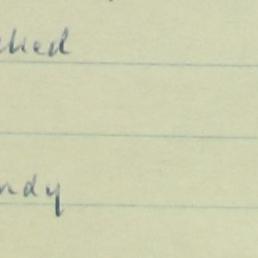 ched
ndy